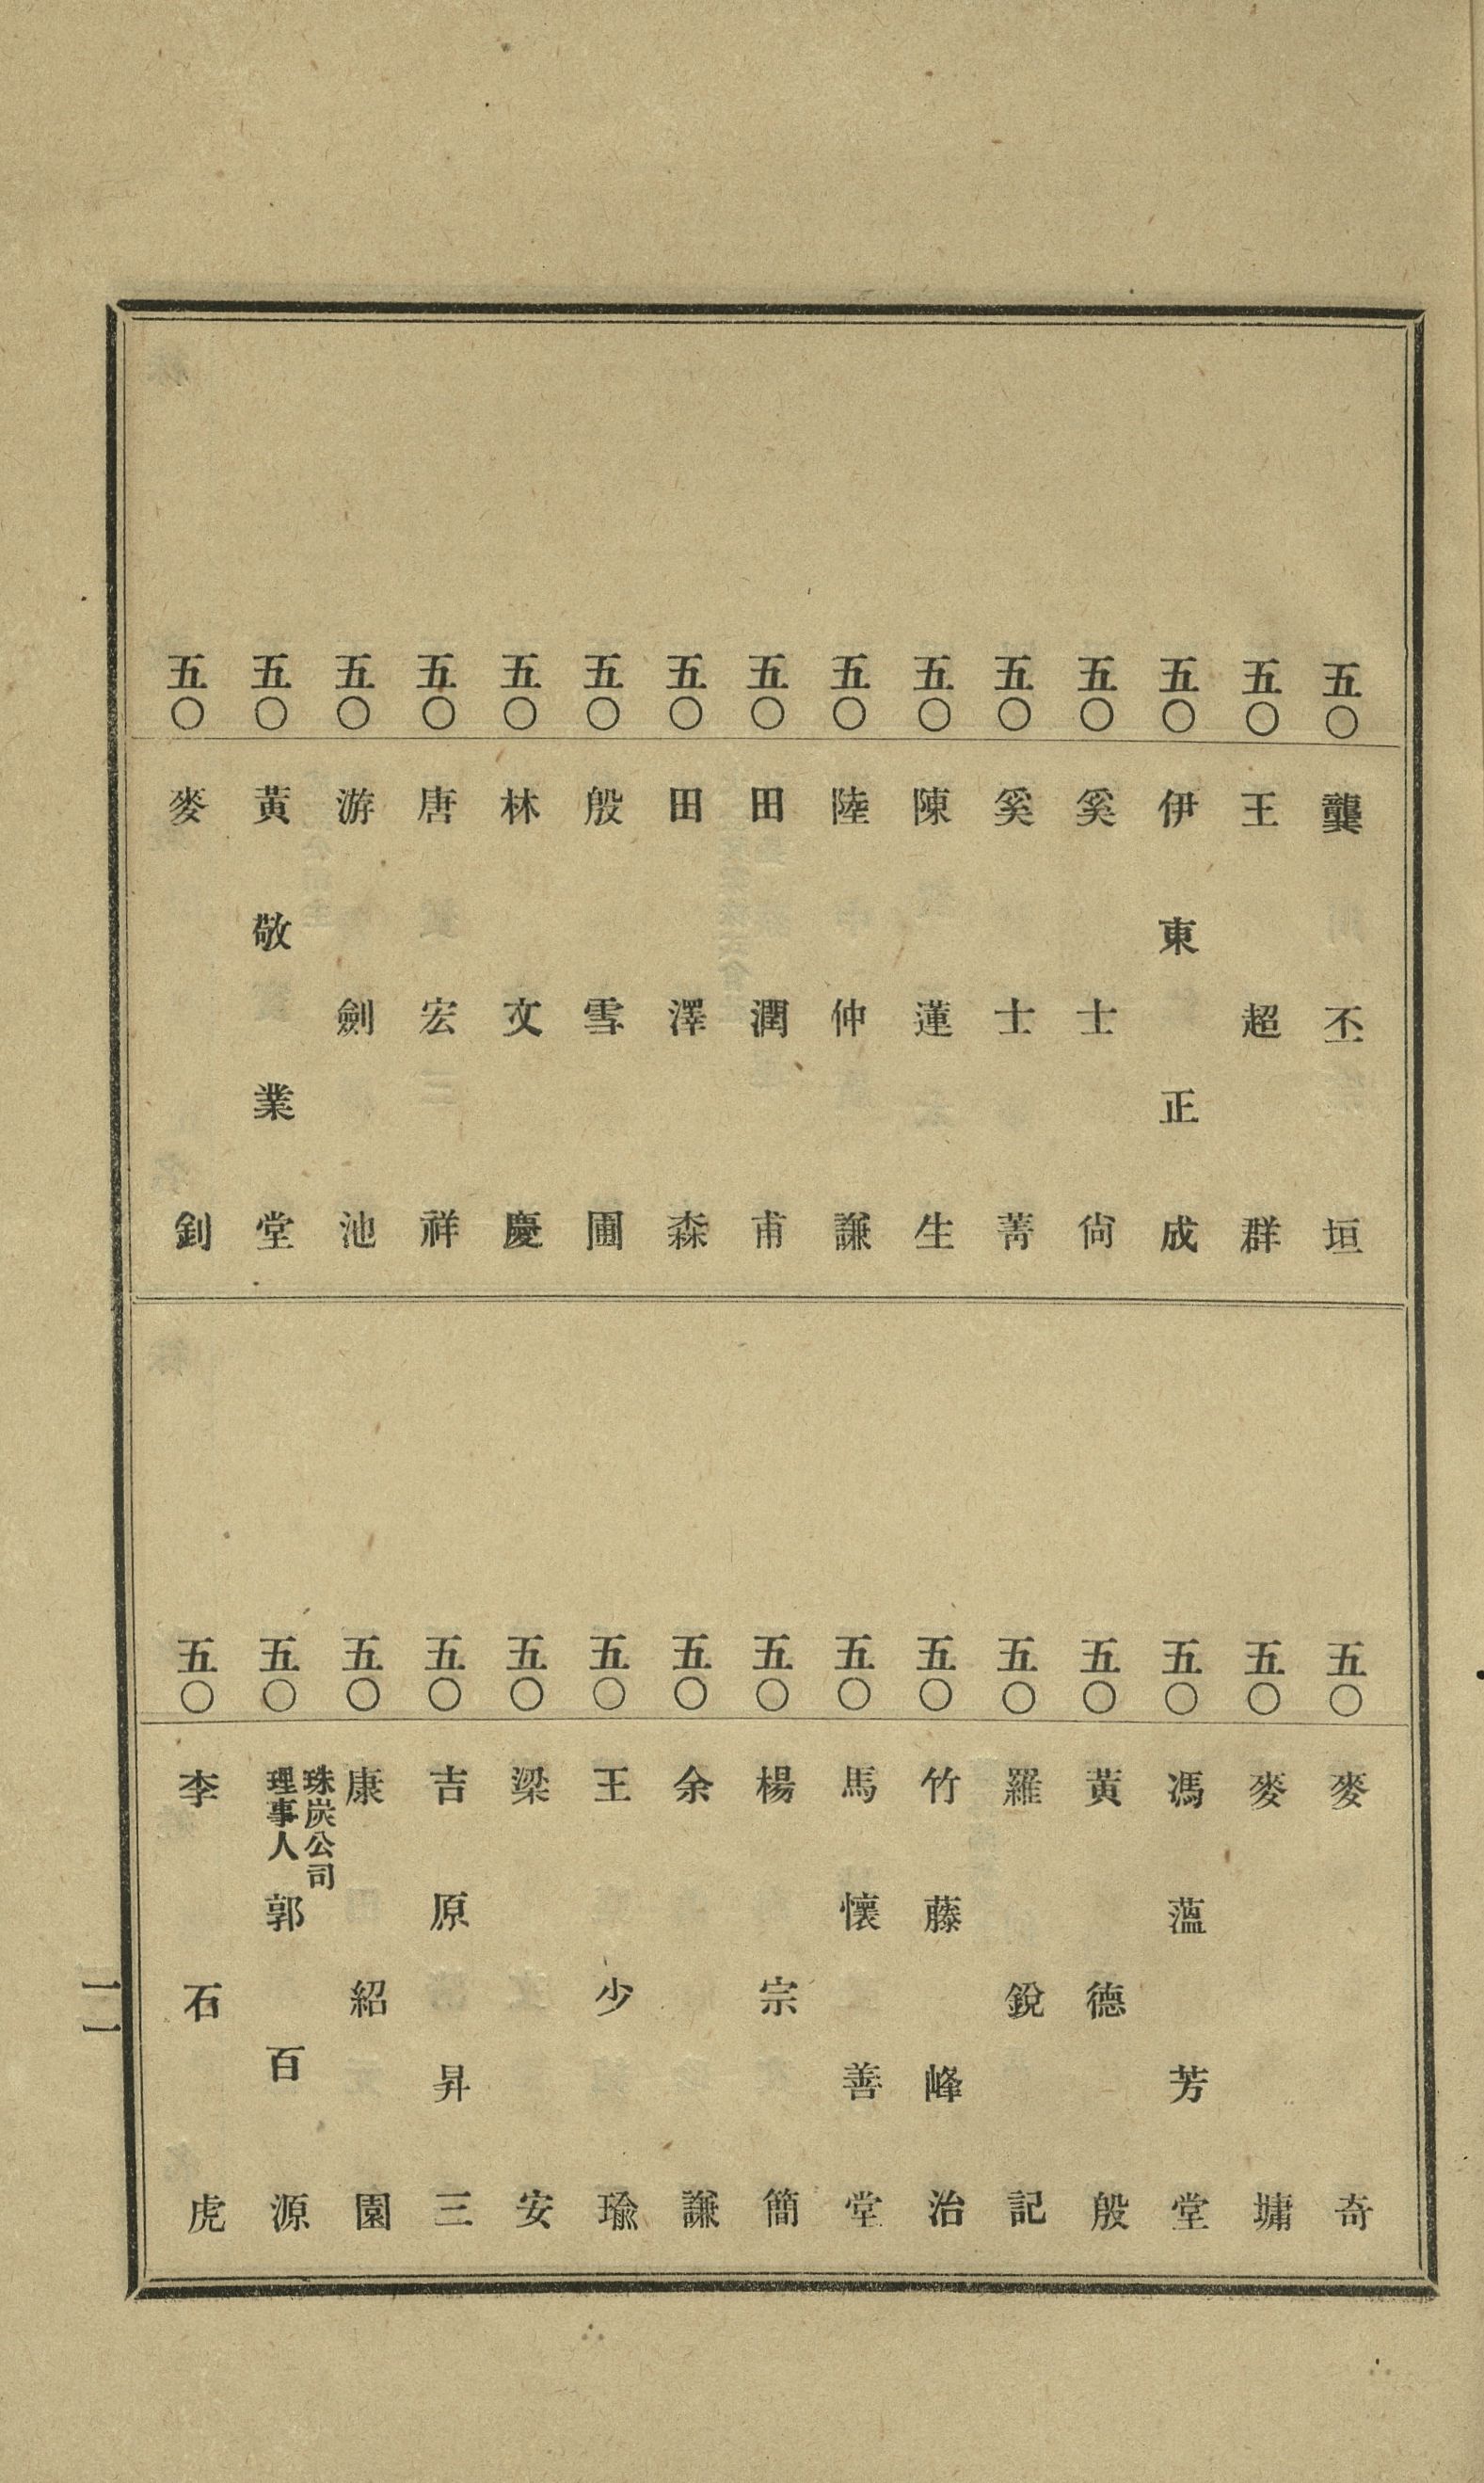 五〇 龔丕垣
五〇 王超群
五〇 伊東正成
五〇 奚士尙
五〇 奚士菁
五〇 陳蓮生
五〇 陸仲謙
五〇 田潤甫
五〇 田澤森
五〇 殷雪圃
五〇 林文慶
五〇 唐宏祥
五〇 游劍池
五〇 黃敬業堂
五〇 麥釗
五〇 麥奇
五〇 麥墉
五〇 馮薀芳堂
五〇 黃德殷
五〇 羅銳記
五〇 竹藤峰治
五〇 馬懷善堂
五〇 楊宗簡
五〇 余謙
五〇 王少瑜
五〇 梁安
五〇 吉原昇三
五〇 康紹園
五〇 珠炭公司理事人 郭百源
五〇 李石虎
一一